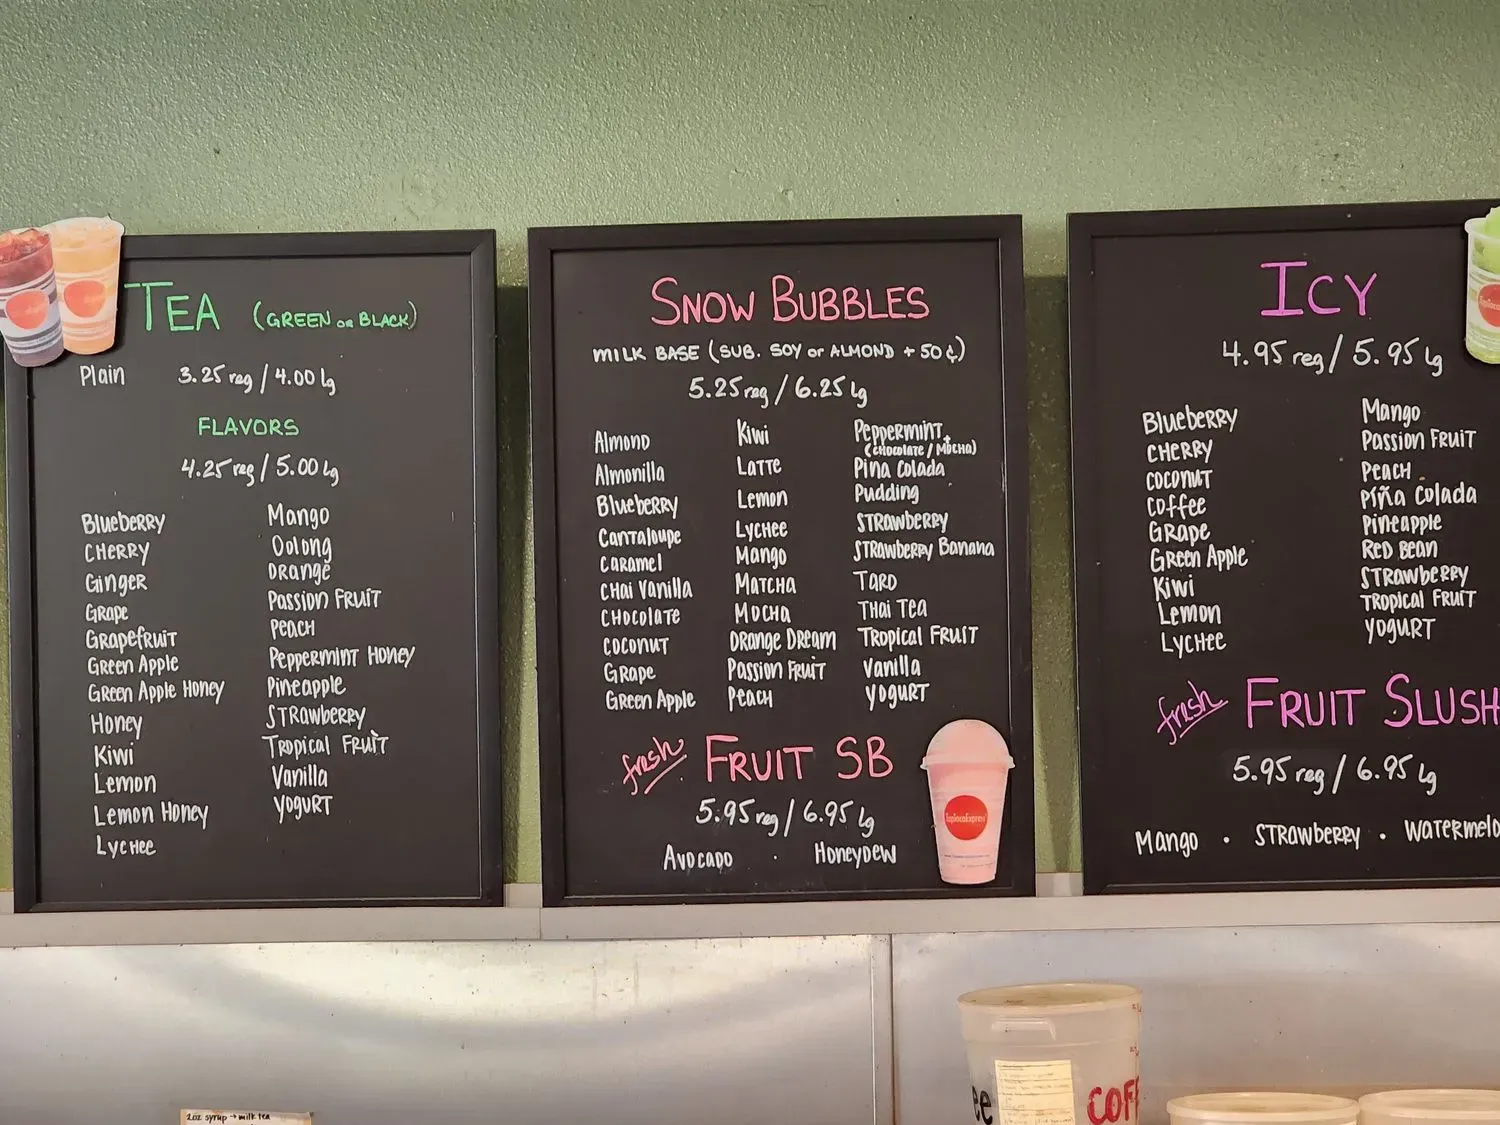 TEA (GREEN or BLACK)
Plain 3.25 reg / 4.00 lg
FLAVORS
4.25 reg / 5.00 lg
Blueberry
Cherry
Ginger
Grape
Grapefruit
Green Apple
Green Apple Honey
Honey
Kiwi
Lemon
Lemon Honey
Lychee
Mango
Oolong
Orange
Passion Fruit
Peach
Peppermint Honey
Pineapple
Strawberry
Tropical Fruit
Vanilla
Yogurt
SNOW BUBBLES
MILK BASE (SUB. SOY or ALMOND + 50¢)
5.25 reg / 6.25 lg
Almond
Almonilla
Blueberry
Cantaloupe
Caramel
Chai Vanilla
Chocolate
Coconut
Grape
Green Apple
Kiwi
Latte
Lemon
Lychee
Mango
Matcha
Mocha
Orange Dream
Passion Fruit
Peach
Peppermint
(Chocolate / Mocha)
Pina Colada
Pudding
Strawberry
Strawberry Banana
Taro
Thai Tea
Tropical Fruit
Vanilla
Yogurt
fresh FRUIT SB
5.95 reg / 6.95 lg
Avocado · Honeydew
TapiocaExpress
ICY
4.95 reg / 5.95 lg
Blueberry
Cherry
Coconut
Coffee
Grape
Green Apple
Kiwi
Lemon
Lychee
Mango
Passion Fruit
Peach
Piña Colada
Pineapple
Red Bean
Strawberry
Tropical Fruit
Yogurt
fresh FRUIT SLUSH
5.95 reg / 6.95 lg
Mango · Strawberry · Watermelo
2oz syrup → milk tea
ee
COFF